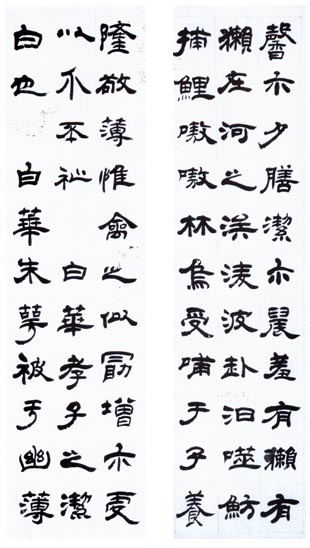 馨尒夕膳潔尒晨羞有獺有
獺在河之涘淩波赴汨噬魴
捕鯉嗷嗷林烏受哺于子養
隆敬薄惟禽之似勗增尒虔
以介丕祉 白華孝子之潔
白也 白華朱萼被于幽薄